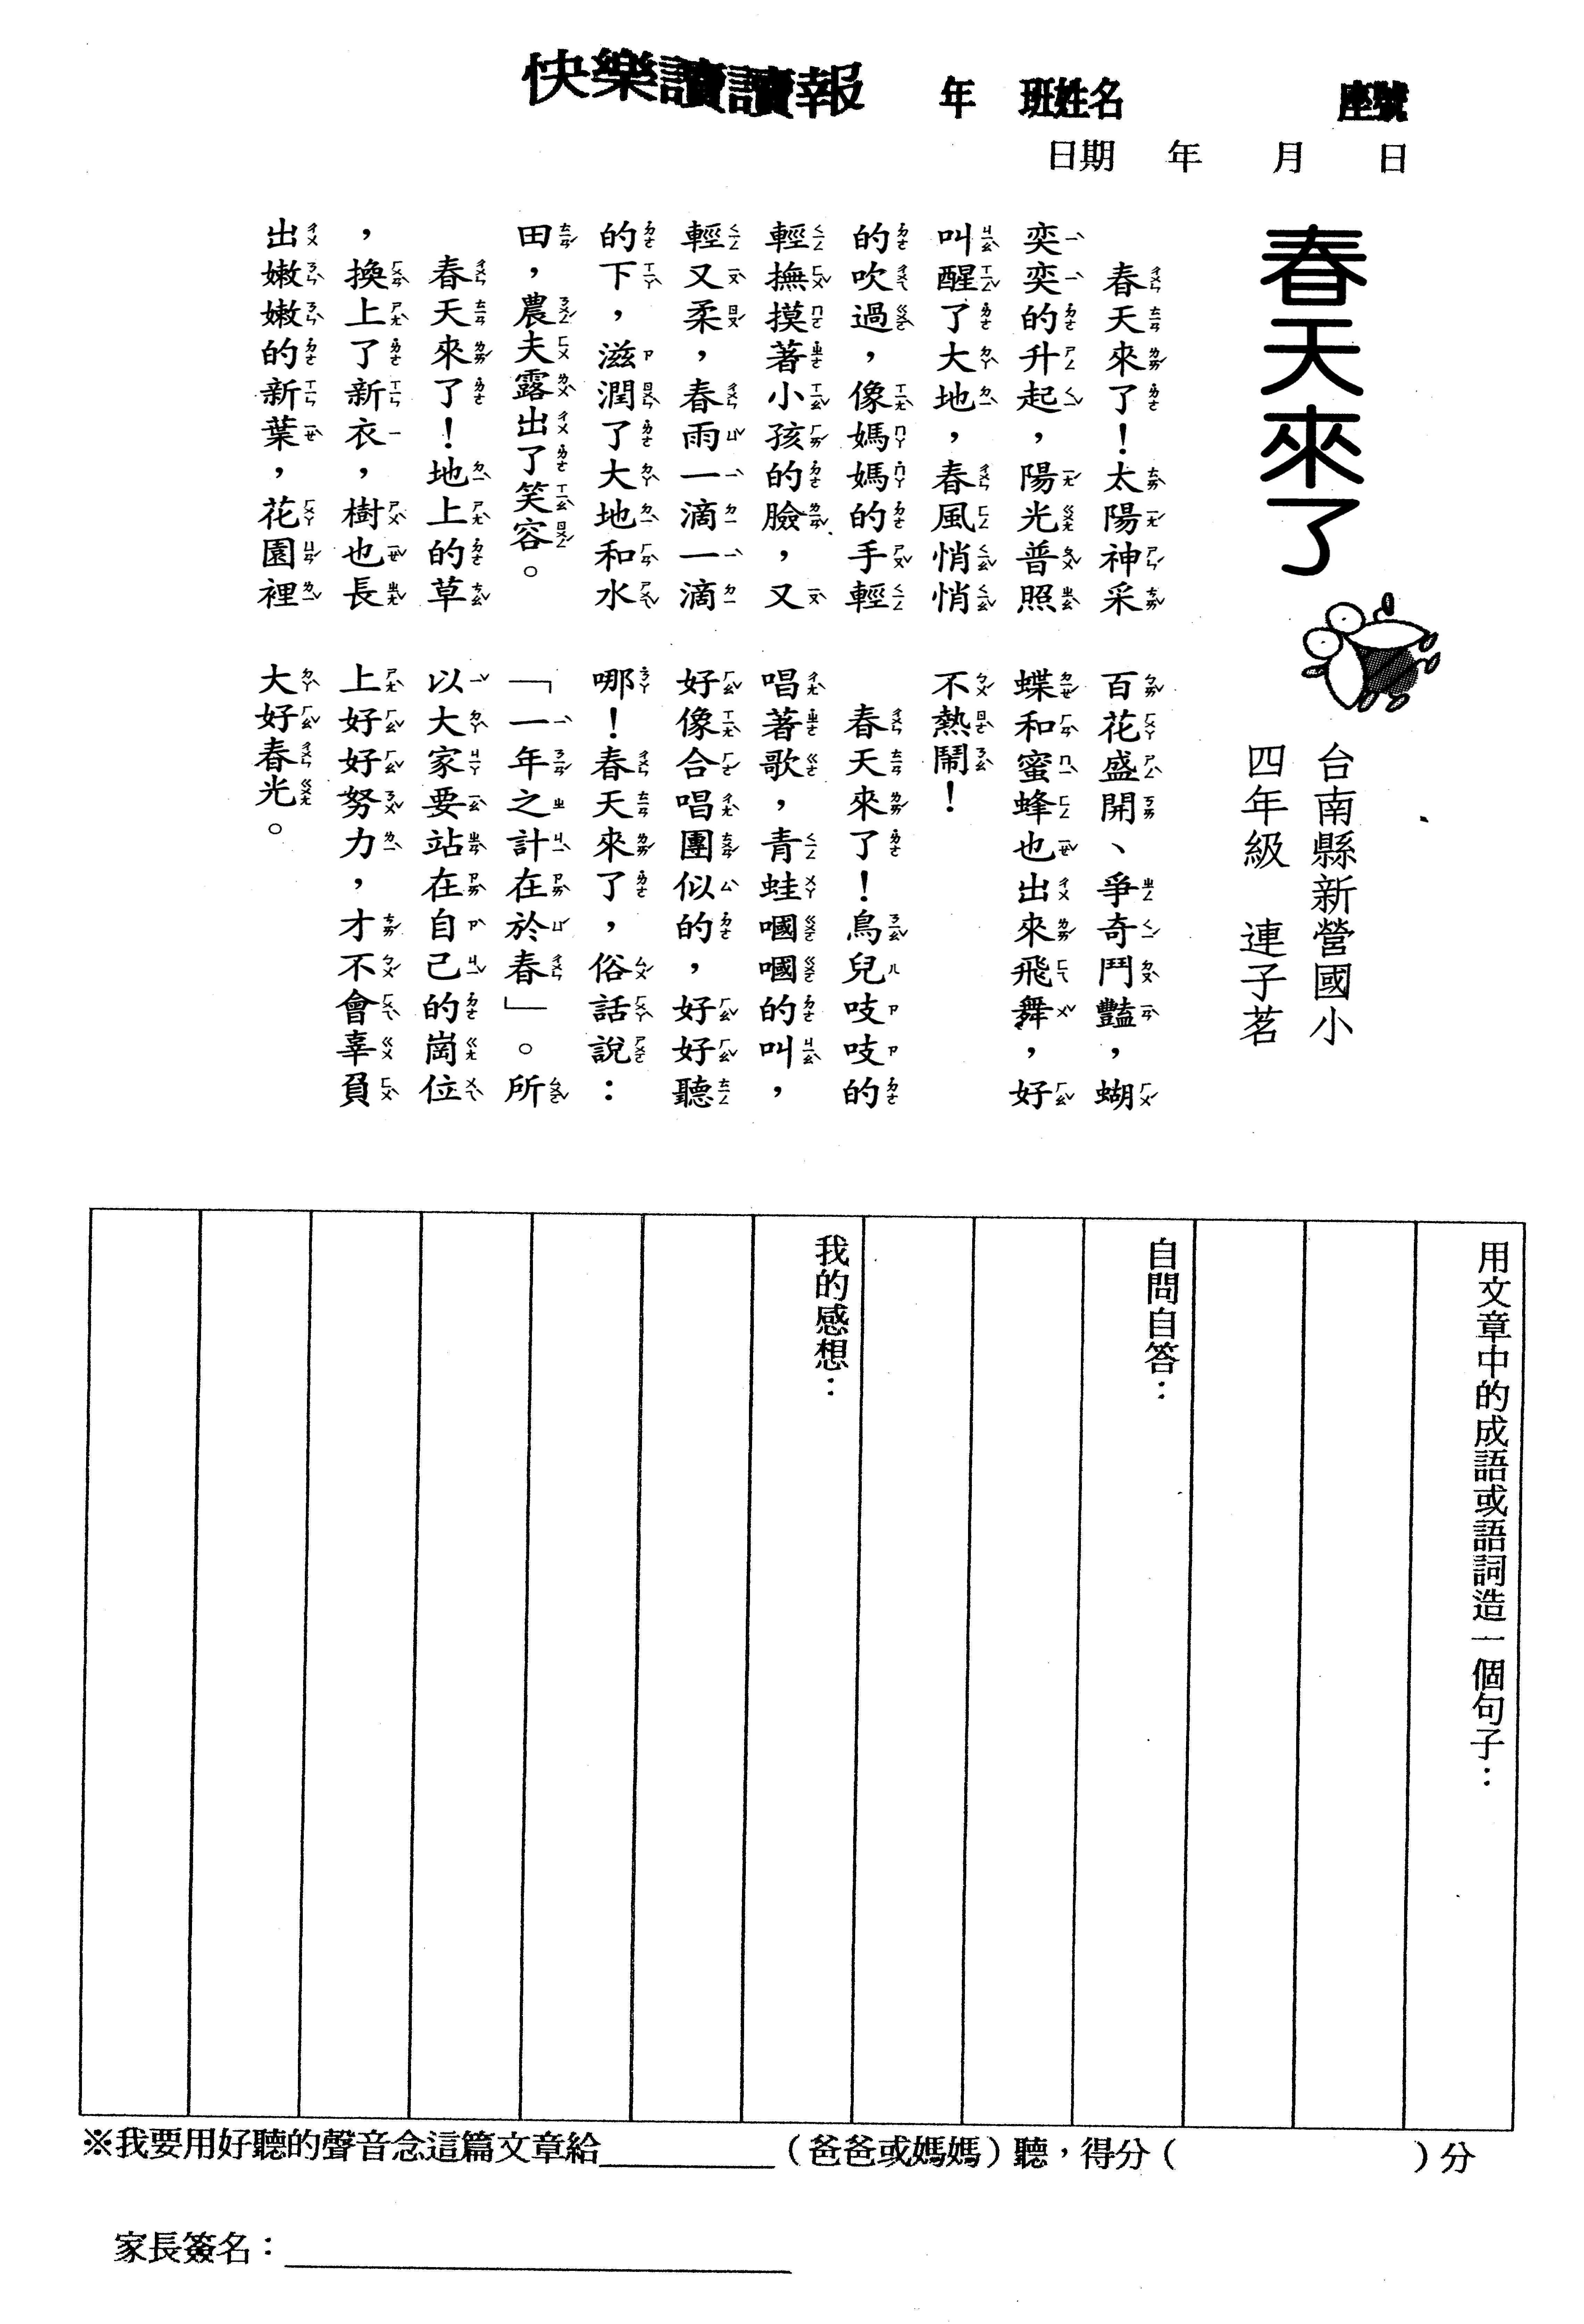 快樂讀讀報　年　班姓名　座號
日期　年　月　日
春天來了
台南縣新營國小
四年級　連子茗
春天來了！太陽神采
奕奕的升起，陽光普照
叫醒了大地，春風悄悄
的吹過，像媽媽的手輕
輕撫摸著小孩的臉，又
輕又柔，春雨一滴一滴
的下，滋潤了大地和水
田，農夫露出了笑容。
春天來了！地上的草
，換上了新衣，樹也長
出嫩嫩的新葉，花園裡
百花盛開、爭奇鬥豔，蝴
蝶和蜜蜂也出來飛舞，好
不熱鬧！
春天來了！鳥兒吱吱的
唱著歌，青蛙嘓嘓的叫，
好像合唱團似的，好好聽
哪！春天來了，俗話說：
「一年之計在於春」。所
以大家要站在自己的崗位
上好好努力，才不會辜負
大好春光。
用文章中的成語或語詞造一個句子：
自問自答：
我的感想：
※我要用好聽的聲音念這篇文章給__________（爸爸或媽媽）聽，得分（　　　）分
家長簽名：__________